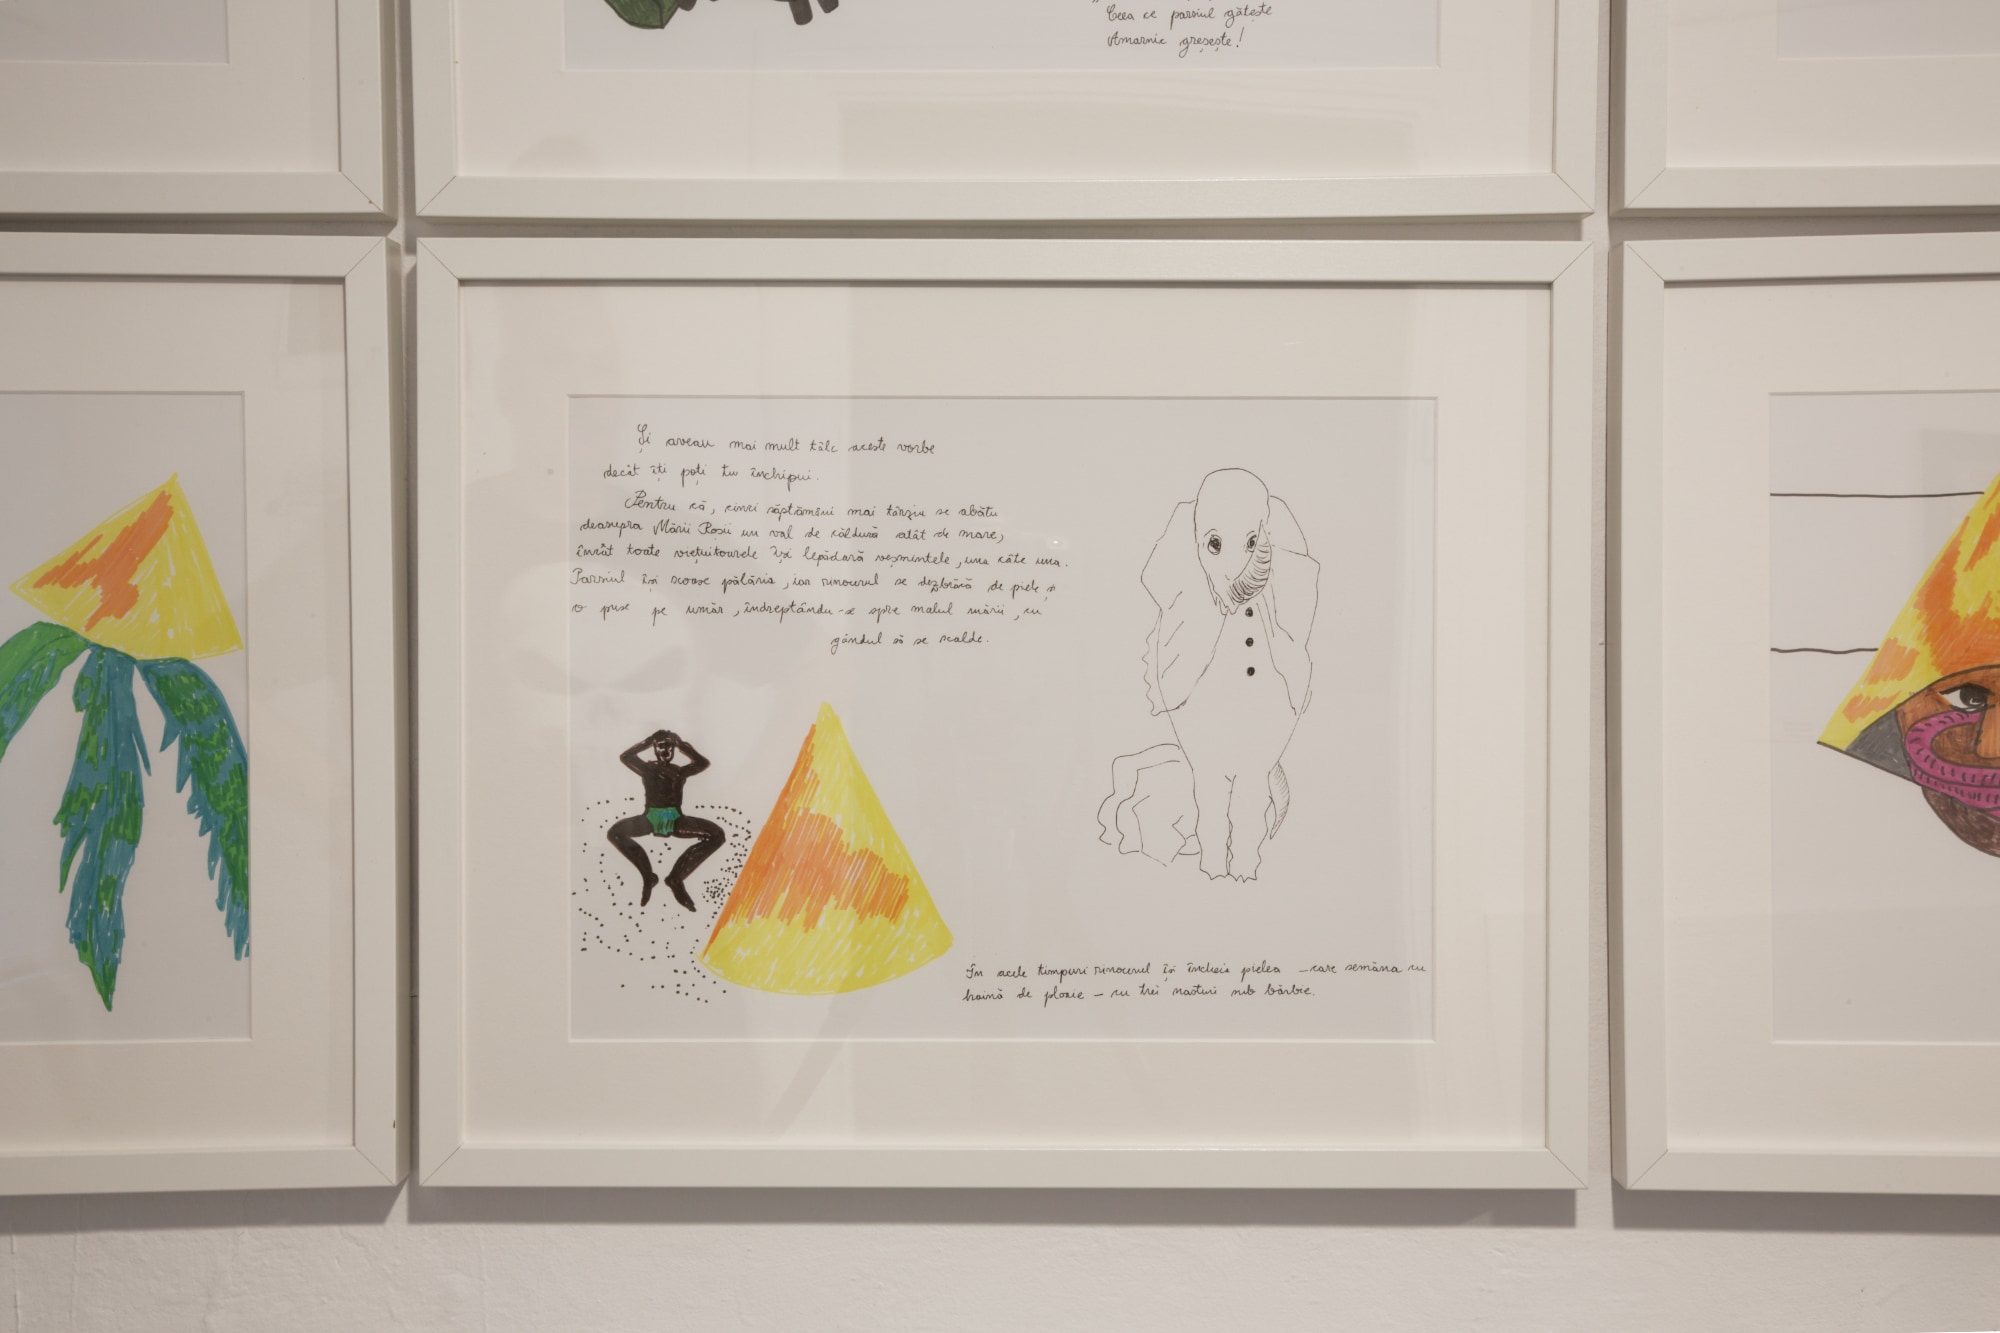 Ceea ce parsiul gătește
Amarnic greșește!
Și aveau mai mult tâlc aceste vorbe
decât îți poți tu închipui.
Pentru că, cinci săptămâni mai târziu se abătu
deasupra Mării Roșii un val de căldură atât de mare,
încât toate viețuitoarele își lepădară veșmintele, una câte una.
Parsiul își scoase pălăria, iar rinocerul se dezbrăcă de piele și
o puse pe umăr, îndreptându-se spre malul mării, cu
gândul să se scalde.
În acele timpuri rinocerul își încheia pielea – care semăna cu
haină de ploaie – cu trei nasturi sub bărbie.